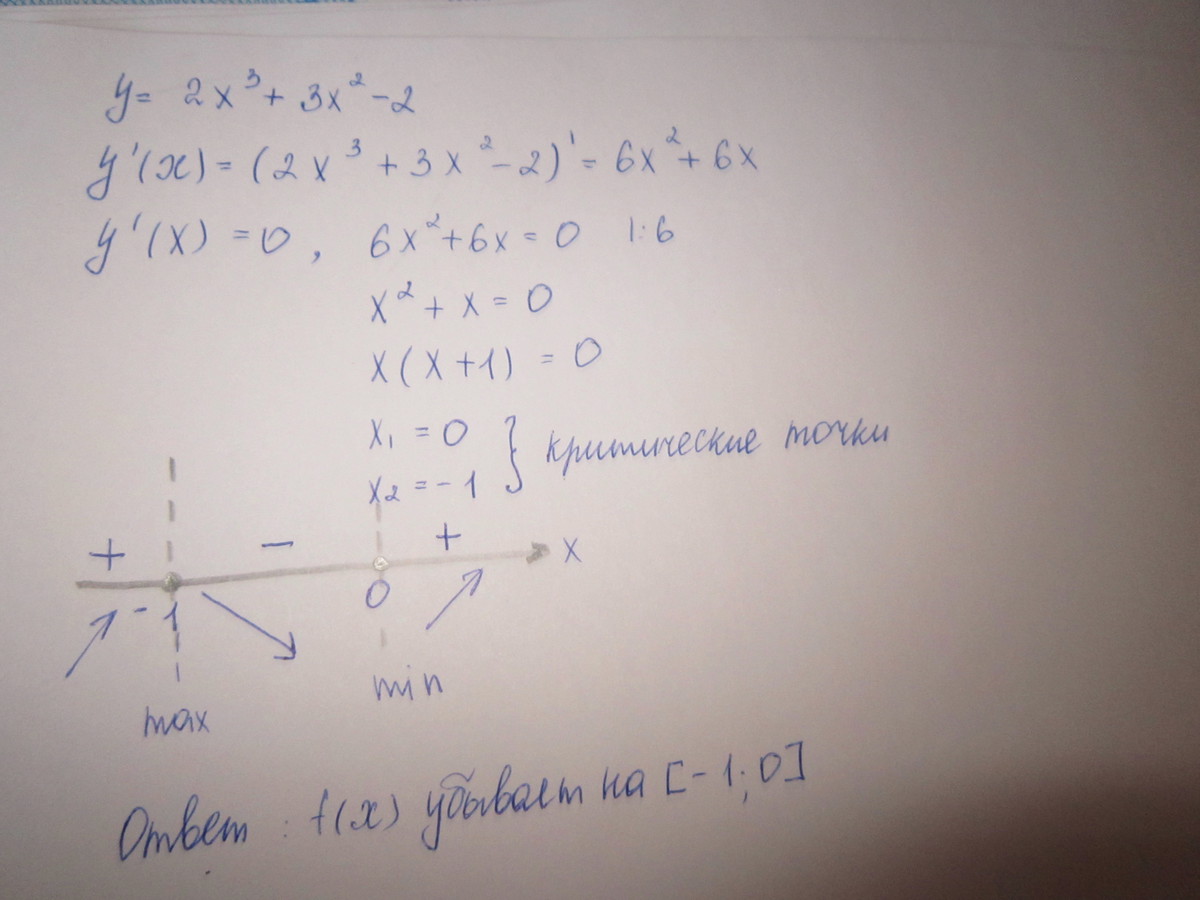 y = 2x³ + 3x² - 2
y'(x) = (2x³ + 3x² - 2)' = 6x² + 6x
y'(x) = 0, 6x² + 6x = 0 |:6
x² + x = 0
x(x+1) = 0
x₁ = 0
x₂ = -1
} критические точки
+ - + x
-1 0
max min
Ответ: f(x) убывает на [-1; 0]